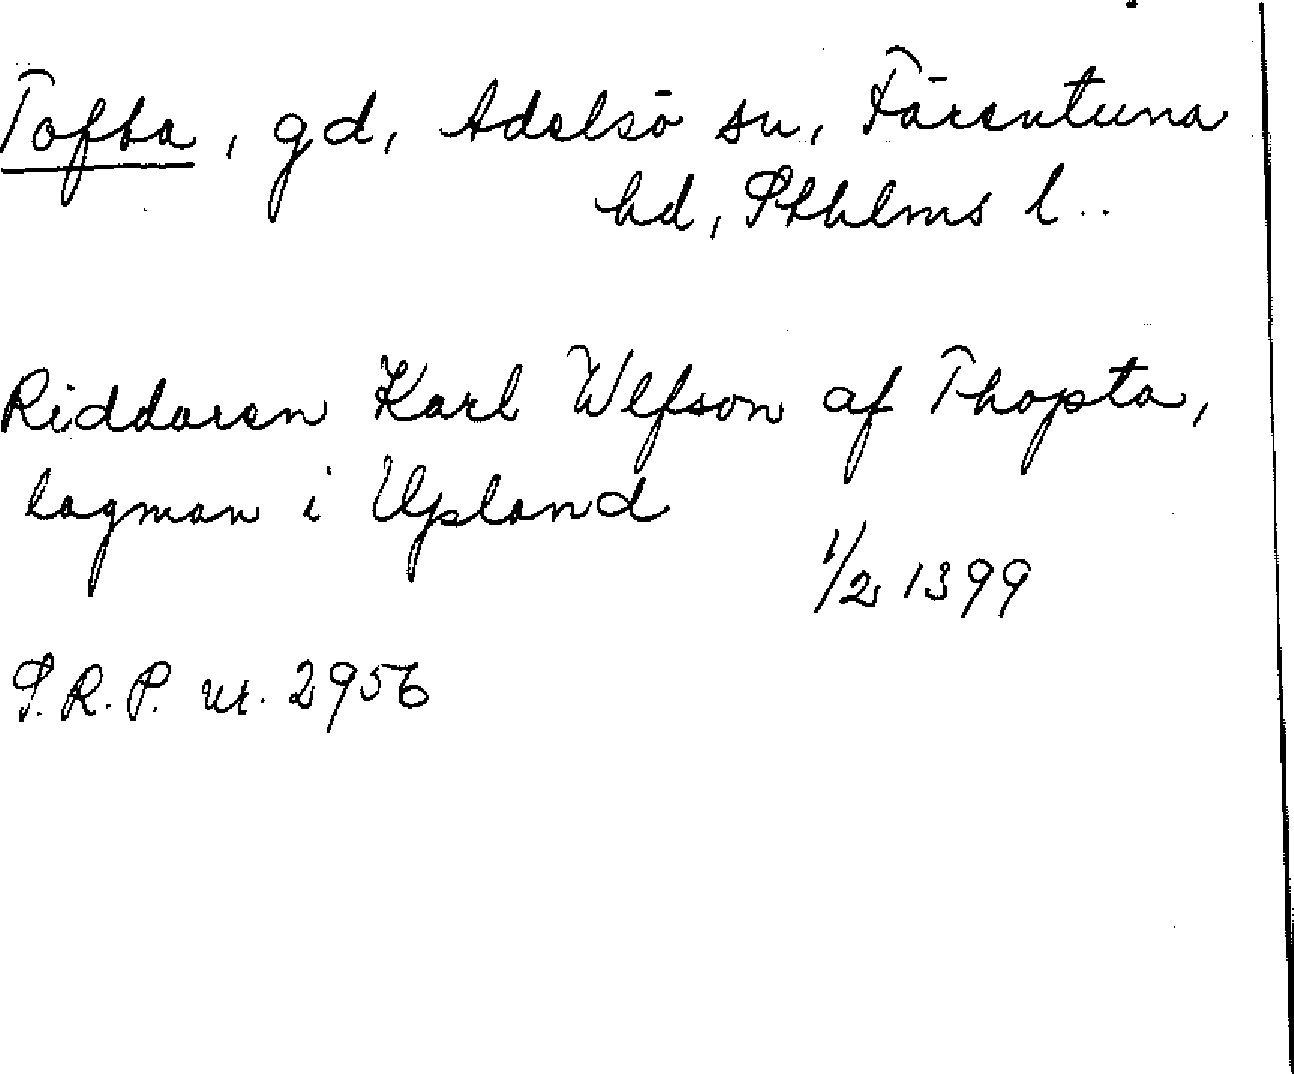 Tofta, gd, Adelsö sn, Färentuna
hd, Sthlms l.
Riddaren Karl Ulfson af Thopta,
lagman i Upland
1/2 1399
S.R.P. nr. 2956